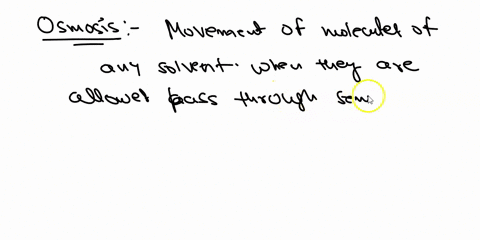 Osmosis:- Movement of molecules of
any solvent. when they are
allowed pass through sem